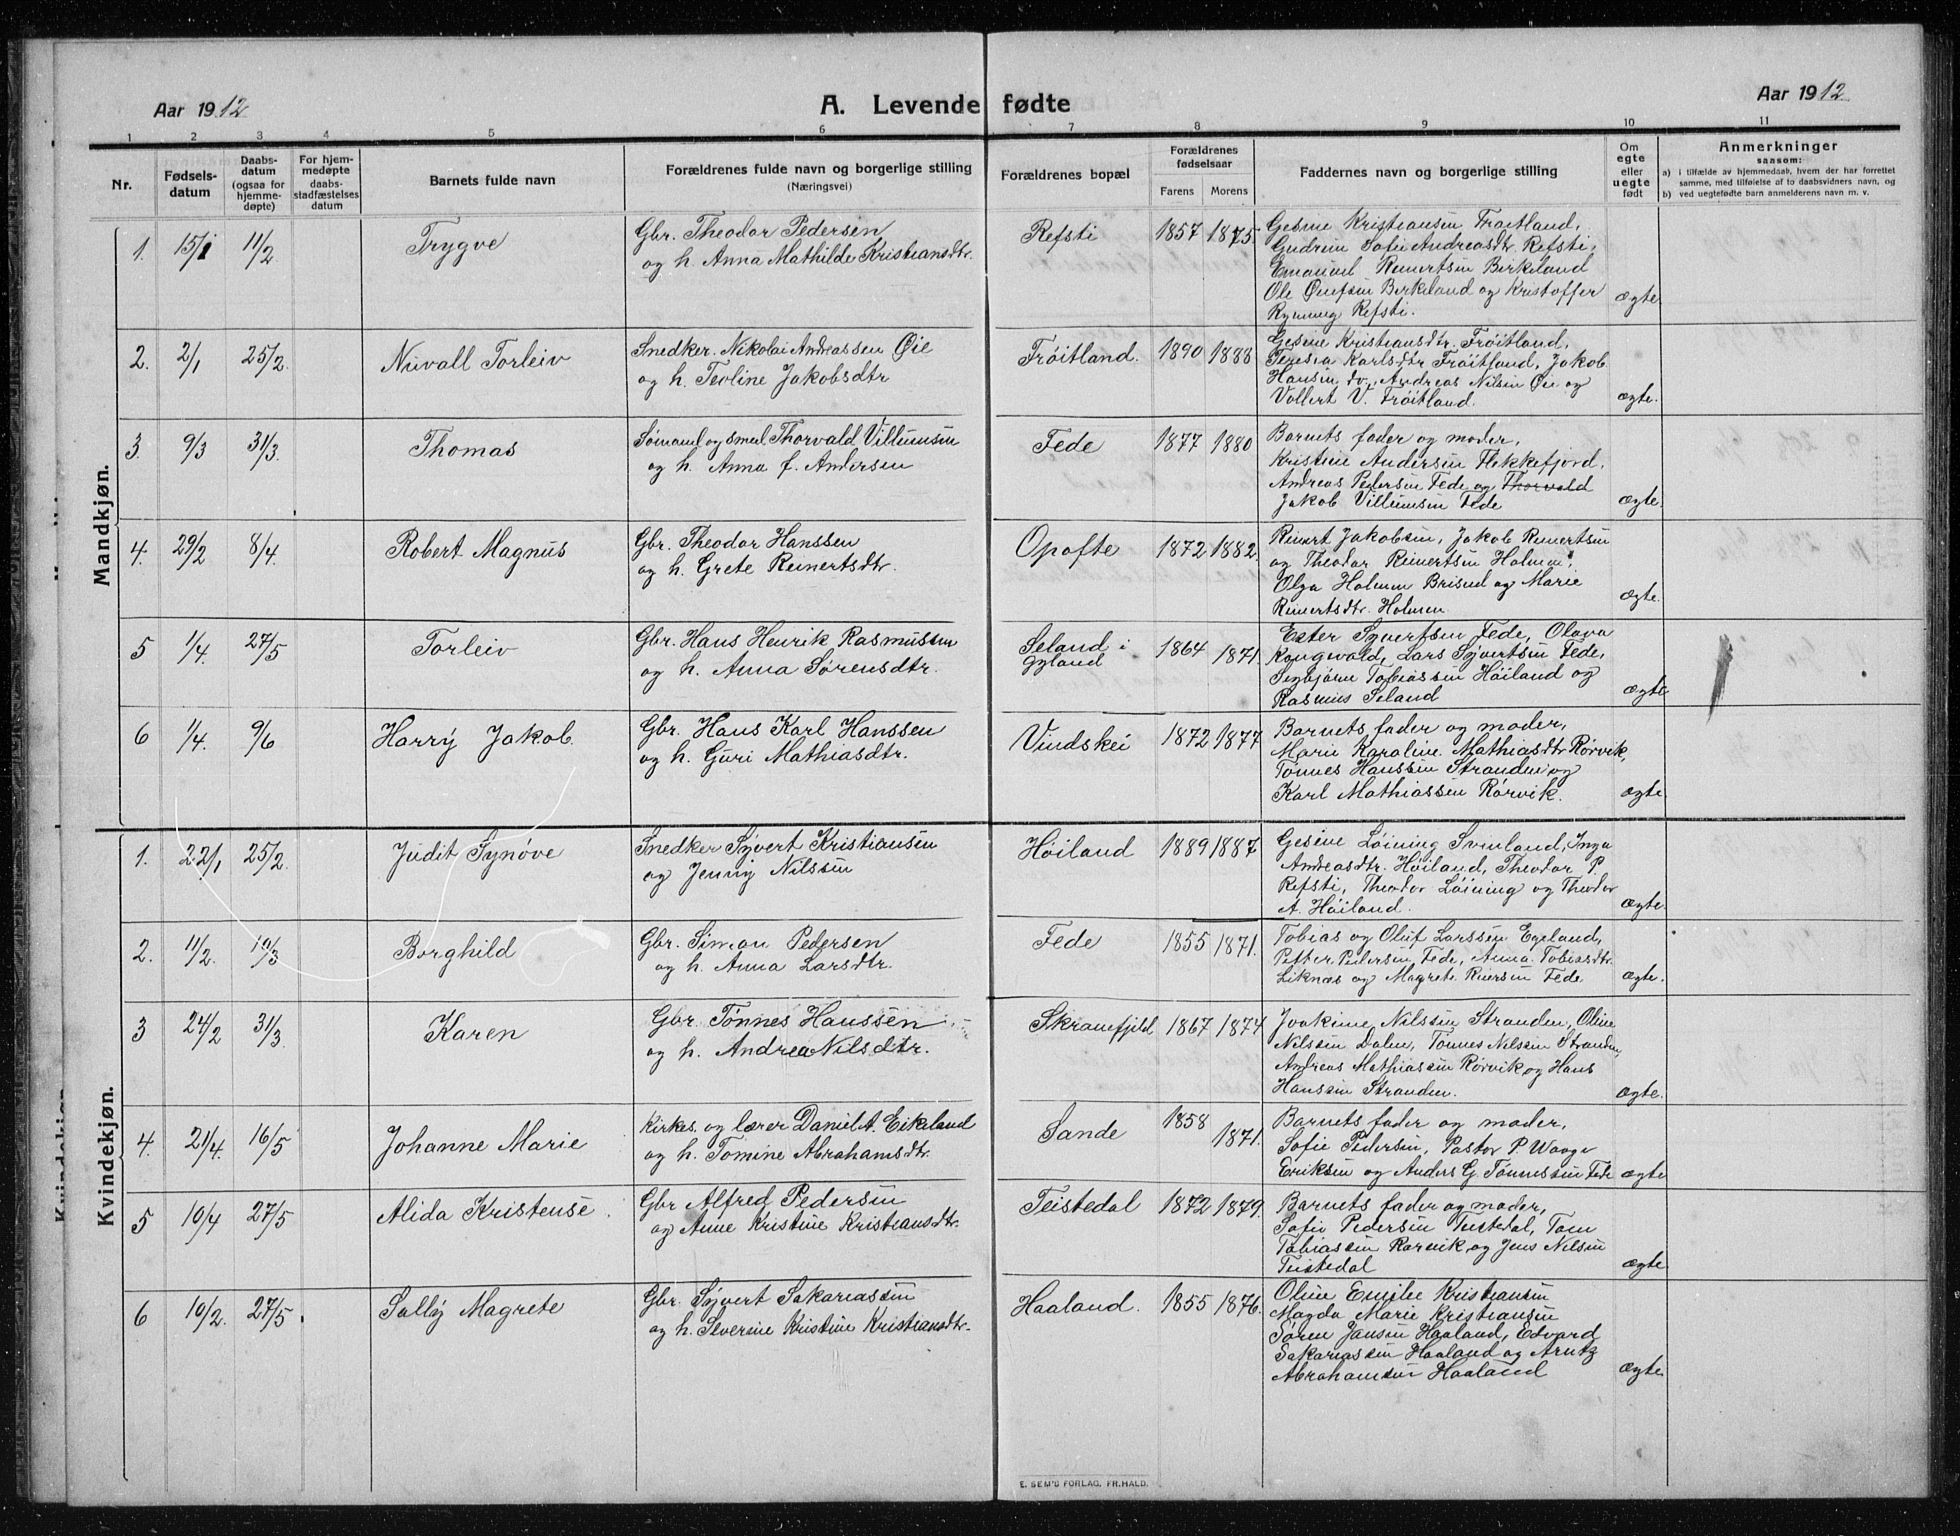 Aar 1912
A. Levende fødte
Aar 1912
1 2 3 4 5 6 7 8 9 10 11
Nr.
Fødselsdatum
Daabsdatum (ogsaa for hjemmedøpte)
For hjemmedøpte daabsstadfæstelses datum
Barnets fulde navn
Forældrenes fulde navn og borgerlige stilling
(Næringsvei)
Forældrenes bopæl
Forældrenes fødselsaar
Farens Morens
Faddernes navn og borgerlige stilling
Om egte eller uegte født
Anmerkninger
saasom:
a) i tilfælde av hjemmedaab, hvem der har forrettet samme, med tilføielse af to daabsvidners navn, og
b) ved uegtefødte barn anmelderens navn m. v.
Mandkjøn.
1. 15/1 11/2 Trygve
Gbr. Theodor Pedersen
og h. Anna Mathilde Kristiansdtr.
Refsti 1857 1875.
Gesine Kristiansen Frøitland,
Gudrun Sofie Andreasdtr. Refsti,
Emanuel Reinertsen Birkeland
Ole Olufsen Birkeland og Kristoffer
Rynning Refsti.
ægte
2. 2/1 25/2. Nuvall Torleiv
Snedker. Nikolai Andreassen Øie
og h. Teoline Jakobsdtr
Frøitland. 1890 1888
Gesine Kristiansdtr. Frøitland,
Teresia Karlsdtr Frøitland, Jakob
Hansen do, Andreas Nilsen Øie og
Vollert V. Frøitland.
ægte.
3. 9/3 31/3. Thomas
Sømand og smed Thorvald Villumsen
og h. Anna f. Andersen
Fede 1877 1880
Barnets fader og moder,
Kristine Andersen Flekkefjord,
Andreas Pedersen Fede og Thorvald
Jakob Villumsen Fede
ægte.
4. 29/2 8/4. Robert Magnus
Gbr. Theodor Hanssen
og h. Grete Reinertsdtr.
Opofte 1872 1882.
Reinert Jakobsen, Jakob Reinertsen
og Theodor Reinertsen Holmen,
Olga Holmen Brisud og Marie
Reinertsdtr. Holmen
ægte.
5 1/4. 27/5 Torleiv
Gbr. Hans Henrik Rasmussen
og h. Anna Sørensdtr.
Seland i
Gyland
1864 1871.
Ester Syvertsen Fede, Olava
Kongevold, Lars Syvertsen Fede,
Sigbjørn Tobiassen Høiland og
Rasmus Seland
ægte
6 1/4. 9/6 Harry Jakob
Gbr. Hans Karl Hanssen
og h. Guri Mathiasdtr.
Vindskei 1872 1877
Barnets fader og moder,
Marie Karaline Mathiasdtr Rørvik,
Tønnes Hanssen Stranden og
Karl Mathiassen Rørvik.
ægte
Kvindekjøn.
1. 22/1 25/2. Judit Synøve
Snedker Syvert Kristiansen
og Jenny Nilssen
Høiland 1889 1887
Gesine Løining Svinland, Inga
Andreasdtr. Høiland, Theodor P.
Refsti, Theodor Løining og Theodor
A. Høiland.
ægte.
2. 11/2. 10/3 Borghild
Gbr. Simon Pedersen
og h. Anna Larsdtr.
Fede 1855 1871.
Tobias og Oluf Larssen Egeland,
Petter Pedersen Fede, Anna Tobiasdtr.
Liknæs og Magrete Reiersen Fede
ægte.
3 24/2 31/3. Karen
Gbr. Tønnes Hanssen
og h. Andrea Nilsdtr.
Skranefjeld 1867 1874
Joakime Nilssen Stranden, Oline
Nilssen Dalen, Tønnes Nilssen Stranden,
Andreas Mathiassen Rørvik og Hans
Hanssen Stranden.
ægte.
4. 21/4. 16/5 Johanne Marie
Kirkes. og lærer Daniel A. Eikeland
og h. Tomine Abrahamsdtr.
Sande 1858 1871.
Barnets fader og moder,
Sofie Pedersen, Pastor P. Waage
Eriksen og Anders G. Tønnessen Fede
ægte
5 10/4 27/5 Alida Kristense.
Gbr Alfred Pedersen
og Anne Kristine Kristiansdtr.
Teistedal 1872 1879.
Barnets fader og moder,
Sofie Pedersen Teistedal, Tom
Tobiassen Rørvik og Jens Nilsen
Teistedal
ægte
6 10/2. 27/5 Sally Magrete
Gbr. Syvert Sakariassen
og h. Severine Kristine Kristiansdtr.
Haaland. 1855 1876.
Oline Emilie Kristiansen
Magda Marie Kristiansen
Søren Jansen Haaland, Edvard
Sakariassen Haaland og Arntz
Abrahamsen Haaland
ægte
E. SEM'S FORLAG. FR.HALD.